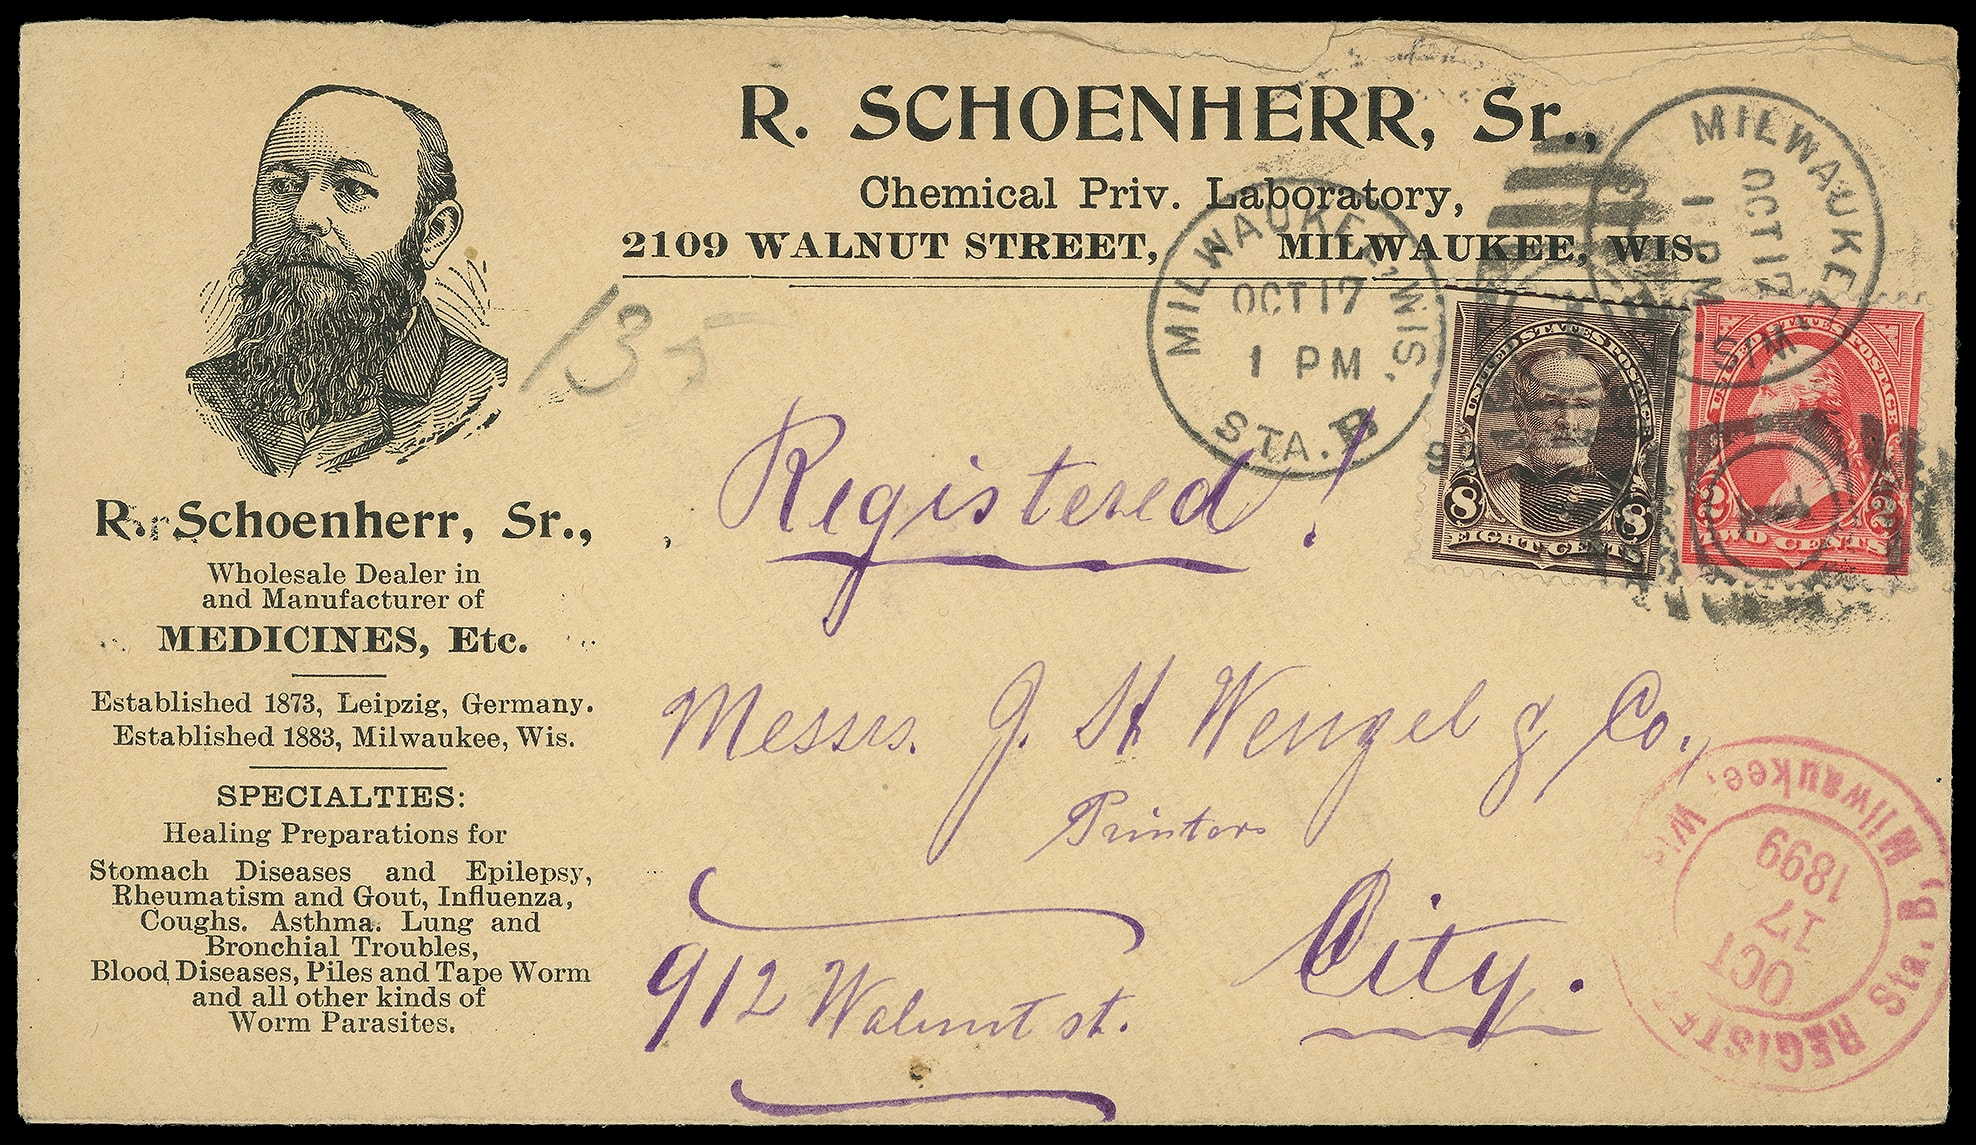 R. SCHOENHERR, Sr.,
Chemical Priv. Laboratory,
2109 WALNUT STREET, MILWAUKEE, WIS.
R. Schoenherr, Sr.,
Wholesale Dealer in
and Manufacturer of
MEDICINES, Etc.
Established 1873, Leipzig, Germany.
Established 1883, Milwaukee, Wis.
SPECIALTIES:
Healing Preparations for
Stomach Diseases and Epilepsy,
Rheumatism and Gout, Influenza,
Coughs. Asthma. Lung and
Bronchial Troubles,
Blood Diseases, Piles and Tape Worm
and all other kinds of
Worm Parasites.
135
MILWAUKEE, WIS.
OCT 17
1 PM
STA. B
MILWAUKEE, WIS.
OCT 17
1 PM
UNITED STATES POSTAGE
8 8
EIGHT CENTS
UNITED STATES POSTAGE
2 2
TWO CENTS
Registered!
Messrs. J. H. Wengel & Co.,
Printers
912 Walnut st.
City.
REGISTERED
Sta. B, Milwaukee, Wis
OCT
17
1899